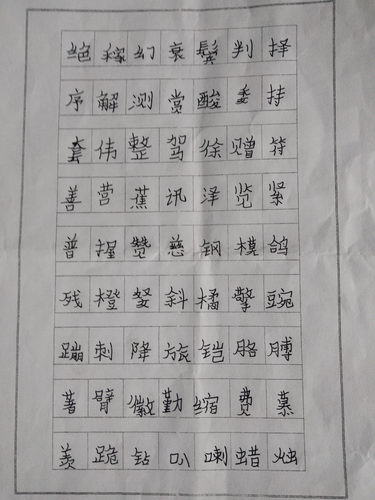 绝稼幻衰鬓判择
序解测赏酸委持
套伟整驾徐赠符
善营蕉讯泽览紧
普握赞慈钢模鸽
残橙竖斜橘擎豌
蹦刺降旅铠胳膊
著臂徽勤缩费慕
羡跪钻叭喇蜡烛